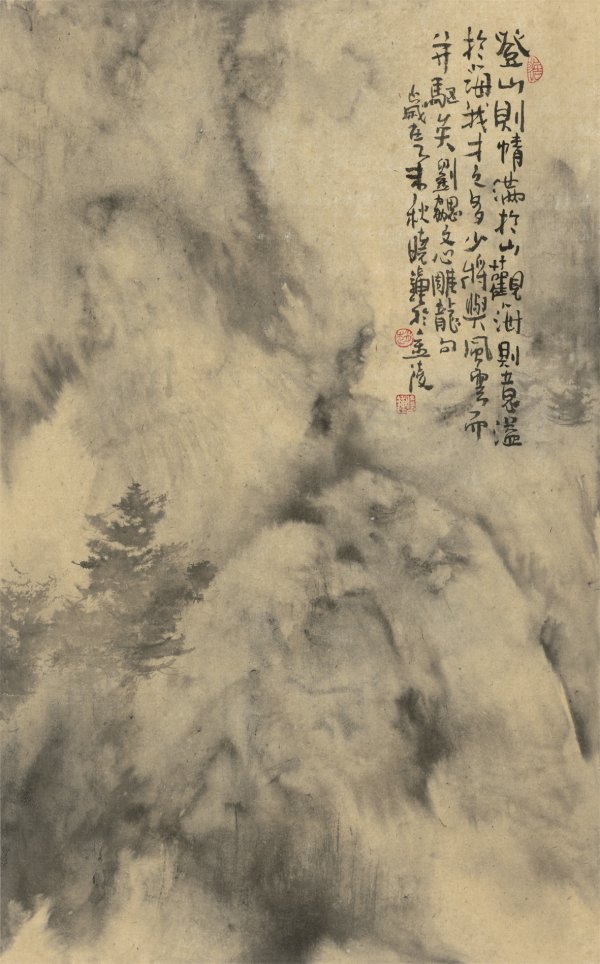 登山則情滿於山觀海則意溢
於海我才之多少將與風雲而
并驅矣劉勰文心雕龍句
歲在乙未秋曉華於金陵